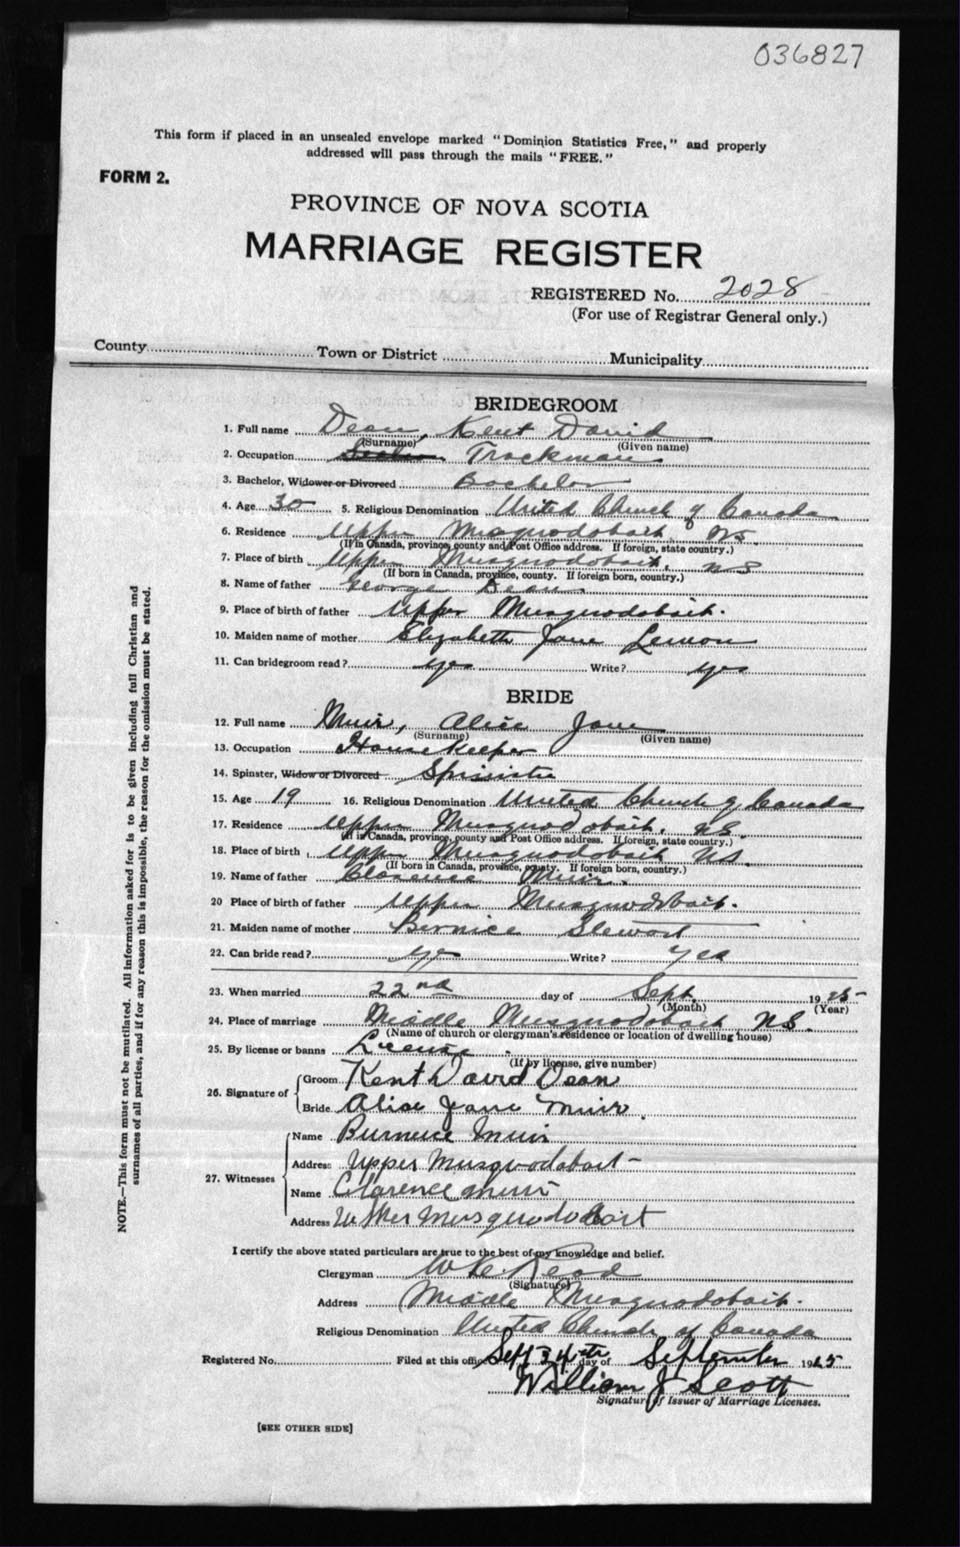 036827
This form if placed in an unsealed envelope marked "Dominion Statistics Free," and properly
addressed will pass through the mails "FREE."
FORM 2.
PROVINCE OF NOVA SCOTIA
MARRIAGE REGISTER
REGISTERED No. 2028
(For use of Registrar General only.)
County Town or District Municipality
BRIDEGROOM
1. Full name Dean, Kent David
(Surname) (Given name)
2. Occupation Trackman
3. Bachelor, Widower or Divorced Bachelor
4. Age 30 5. Religious Denomination United Church of Canada
6. Residence Upper Musquodoboit, NS.
(If in Canada, province, county and Post Office address. If foreign, state country.)
7. Place of birth Upper Musquodoboit, NS
(If born in Canada, province, county. If foreign born, country.)
8. Name of father George Dean.
9. Place of birth of father Upper Musquodoboit.
10. Maiden name of mother Elizabeth Jane Lemon
11. Can bridegroom read? yes Write? yes
BRIDE
12. Full name Muir, Alice Jane
(Surname) (Given name)
13. Occupation Housekeeper
14. Spinster, Widow or Divorced Spinster
15. Age 19 16. Religious Denomination United Church of Canada
17. Residence Upper Musquodoboit, NS.
(If in Canada, province, county and Post Office address. If foreign, state country.)
18. Place of birth Upper Musquodoboit NS.
(If born in Canada, province, county. If foreign born, country.)
19. Name of father Clarence Muir.
20 Place of birth of father Upper Musquodoboit.
21. Maiden name of mother Bernice Stewart
22. Can bride read? yes Write? Yes
23. When married 22nd day of Sept. 1925
(Month) (Year)
24. Place of marriage Middle Musquodoboit NS.
(Name of church or clergyman's residence or location of dwelling house)
25. By license or banns License
(If by license, give number)
26. Signature of Groom Kent David Dean
Bride Alice Jane Muir.
27. Witnesses Name Burnice Muir
Address Upper Musquodoboit
Name Clarence Muir
Address Upper Musquodoboit
I certify the above stated particulars are true to the best of my knowledge and belief.
Clergyman Read
(Signature)
Address Middle Musquodoboit.
Religious Denomination United Church of Canada
Registered No. Filed at this office Sept day of September 1925
William J Scott
Signature of Issuer of Marriage Licenses.
[SEE OTHER SIDE]
NOTE.—This form must not be mutilated. All information asked for is to be given including full Christian and
surnames of all parties, and if for any reason this is impossible, the reason for the omission must be stated.